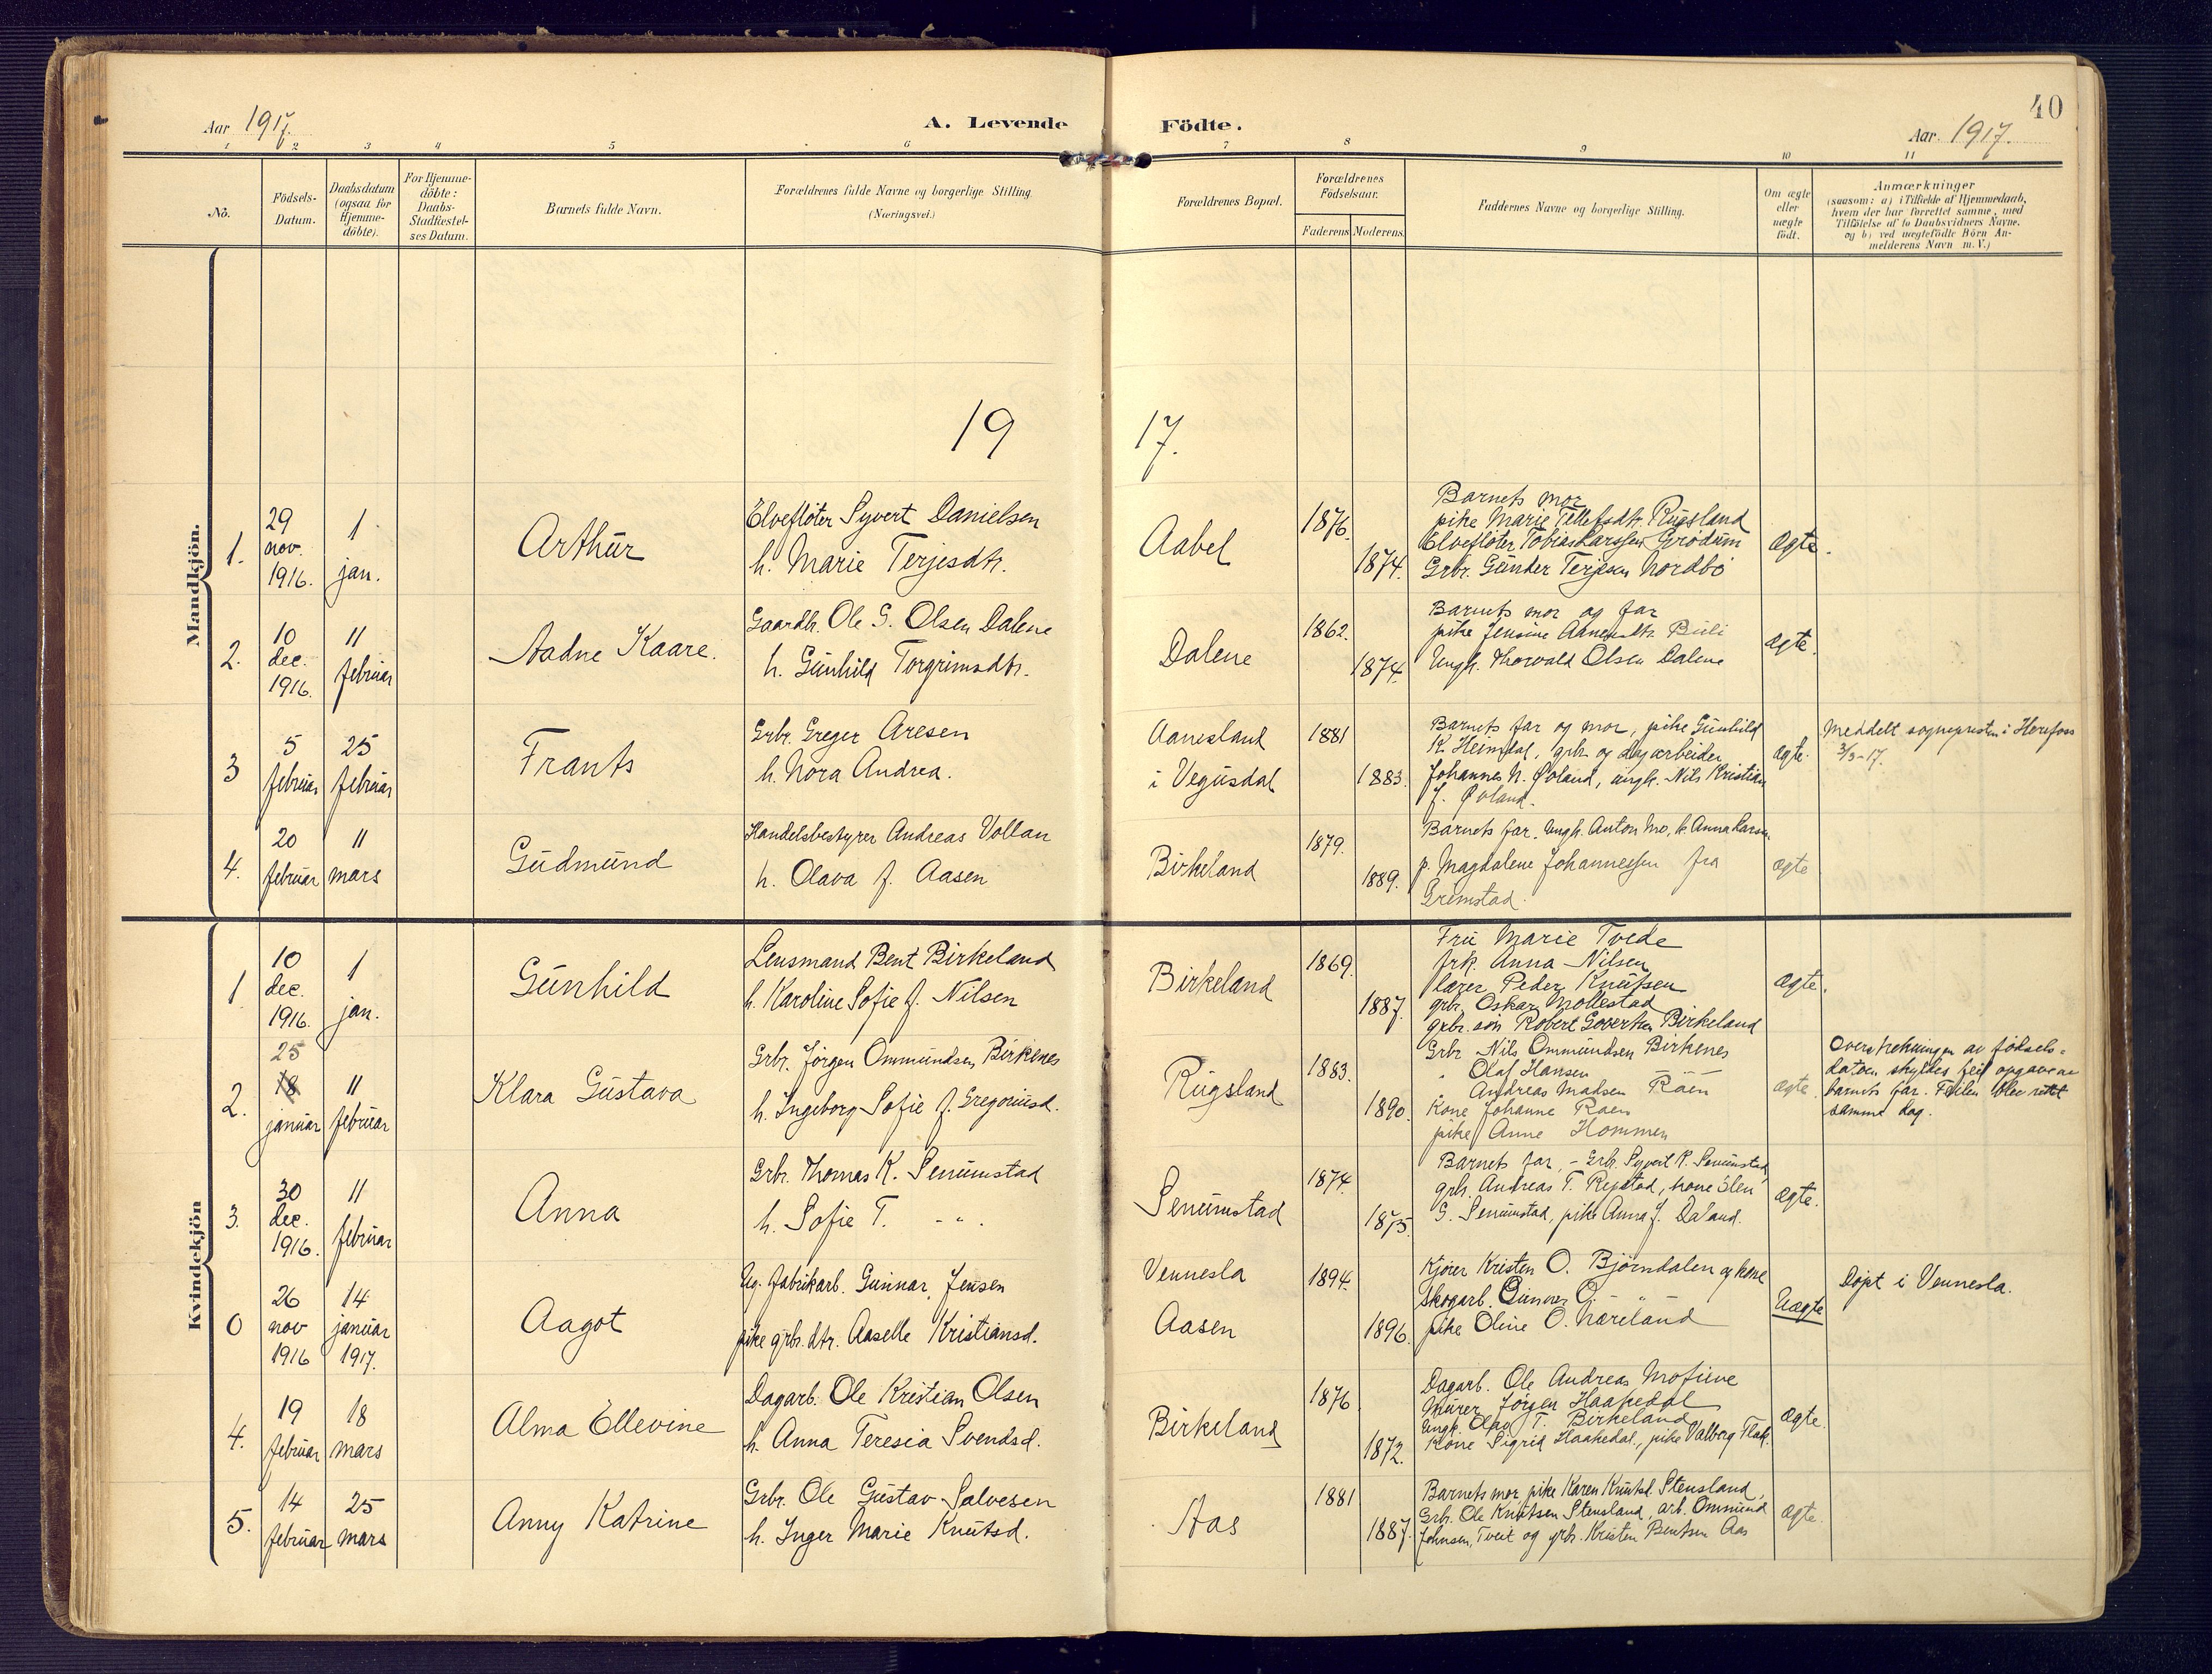 40
Aar 1917.
A. Levende
Födte.
Aar. 1917.
1 2 3 4 5 6 7 8 9 10 11
No.
Födsels-
Datum.
Daabsdatum
(ogsaa for
Hjemme-
döbte).
For Hjemme-
döbte:
Daabs-
Stadfæstel-
ses Datum.
Barnets fulde Navn.
Forældrenes fulde Navne og borgerlige Stilling.
(Næringsvei.)
Forældrenes Bopæl.
Forældrenes
Födselsaar.
Faderens
Moderens.
Faddernes Navne og borgerlige Stilling.
Om ægte
eller
uægte
födt.
Anmærkninger
(saasom: a) i Tilfælde af Hjemmedaab,
hvem der har forrettet samme, med
Tilföielse af to Daabsvidners Navne.
og b) ved uægtefödte Börn An-
melderens Navn m. V.)
19
17.
Mandkjön.
1.
29
nov.
1916.
1
jan.
Arthur
Elvefløter Syvert Danielsen
h. Marie Terjesdtr.
Aabel
1876.
1874.
Barnets mor
pike Marie Tellefsdtr. Rugsland
Elvefløter Tobias Larssen Grødum
Grbr. Gunder Terjesen Nordbø
Ægte.
2.
10
dec.
1916.
11
februar
Aadne Kaare.
Gaardb. Ole G. Olsen Dalene
h. Gunhild Torgrimsdtr.
Dalene
1862.
1874.
Barnets mor og far
pike Jensine Aanensdtr. Buli
Ungk. Thorvald Olsen Dalene
ægte.
3
5
februar
25
februar
Frants
Grbr. Greger Aresen
h. Nora Andrea.
Aanesland
i Vegusdal
1881
1883.
Barnets far og mor, pike Gunhild
K. Heimdal, grb. og dagarbeider
Johannes N. Øvland, ungk. Nils Kristian
J. Øvland.
ægte.
Meddelt sognepresten i Herefoss
3/3-17.
4.
20
februar
11
mars
Gudmund
Handelsbestyrer Andreas Vollan
h. Olava f. Aasen
Birkeland
1879.
1889.
Barnets far. Ungk. Anton Mo, k. Anna Larsen
p. Magdalene Johannessen fra
Grimstad.
ægte
Kvindekjön
1
10
dec.
1916.
1
jan.
Gunhild
Lensmand Bent Birkeland
h. Karoline Sofie f. Nilsen
Birkeland
1869.
1887.
Fru Marie Tvede
frk. Anna Nilsen
lærer Peder Knutsen
grb. Oskar Mollestad
grbr. søn Robert Govertsen Birkeland
ægte.
2.
25
18
januar
11
februar
Klara Gustava
Grbr. Jørgen Ommundsen Birkenes
h. Ingeborg Sofie f. Gregoriusd.
Rugsland
1883.
1890.
Grbr Nils Ommundsen Birkenes
" Olaf Hansen
Andreas Madsen Raen
Kone Johanne Raen
pike Anne Hommen
ægte.
Overstrekningen av fødsels-
datoen skyldes feil opgave av
barnets far. Feilen blev rettet
samme dag.
3.
30
dec.
1916.
11
februar
Anna
Grbr. Thomas K. Senumstad
h. Sofie T. - " .
Senumstad
1874.
1875.
Barnets far, - Grb. Syvert K. Senumstad
grb. Andreas T. Rejstad, kone Elen
G. Senumstad, pike Anna J. Daland.
ægte.
0
26
nov
1916
14
januar
1917.
Aagot
Ug. fabrikarb. Gunnar Jensen
pike grb. dtr. Aaselle Kristiansd.
Vennesla
Aasen
1894.
1896.
Kjører Kristen O. Bjørndalen og kone
Skogarb. Gunner O. - " -
pike Oline O. Næreland
Uægte
Døpt i Vennesla.
4.
19
februar
18
mars
Alma Ellevine
Dagarb. Ole Kristian Olsen
h. Anna Teresia Svendsd.
Birkeland
1876
1872.
Dagarb. Ole Andreas Mosiene
Murer Jørgen Haakedal
Ungk. Olav T. Birkeland
Kone Sigrid Haakedal, pike Valborg Flak.
ægte.
5.
14
februar
25
mars
Anny Katrine
Grbr. Ole Gustav Salvesen
h. Inger Marie Knutsd.
Aas
1881
1887.
Barnets mor, pike Karen Knutsd. Stensland,
Grb. Ole Knutsen Stensland, arb. Ommund
Johnsen, Tveit og grb. Kristen Bentsen Aas
ægte.